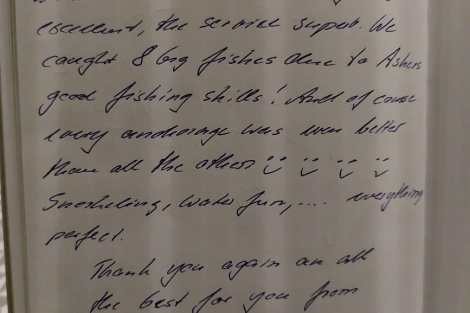 excellent, the service superb. We
caught 8 big fishes due to Ashers
good fishing skills! And of course
every anchorage was even better
than all the others
Snorkeling, water fun, .... everything
perfect.
Thank you again an all
the best for you from